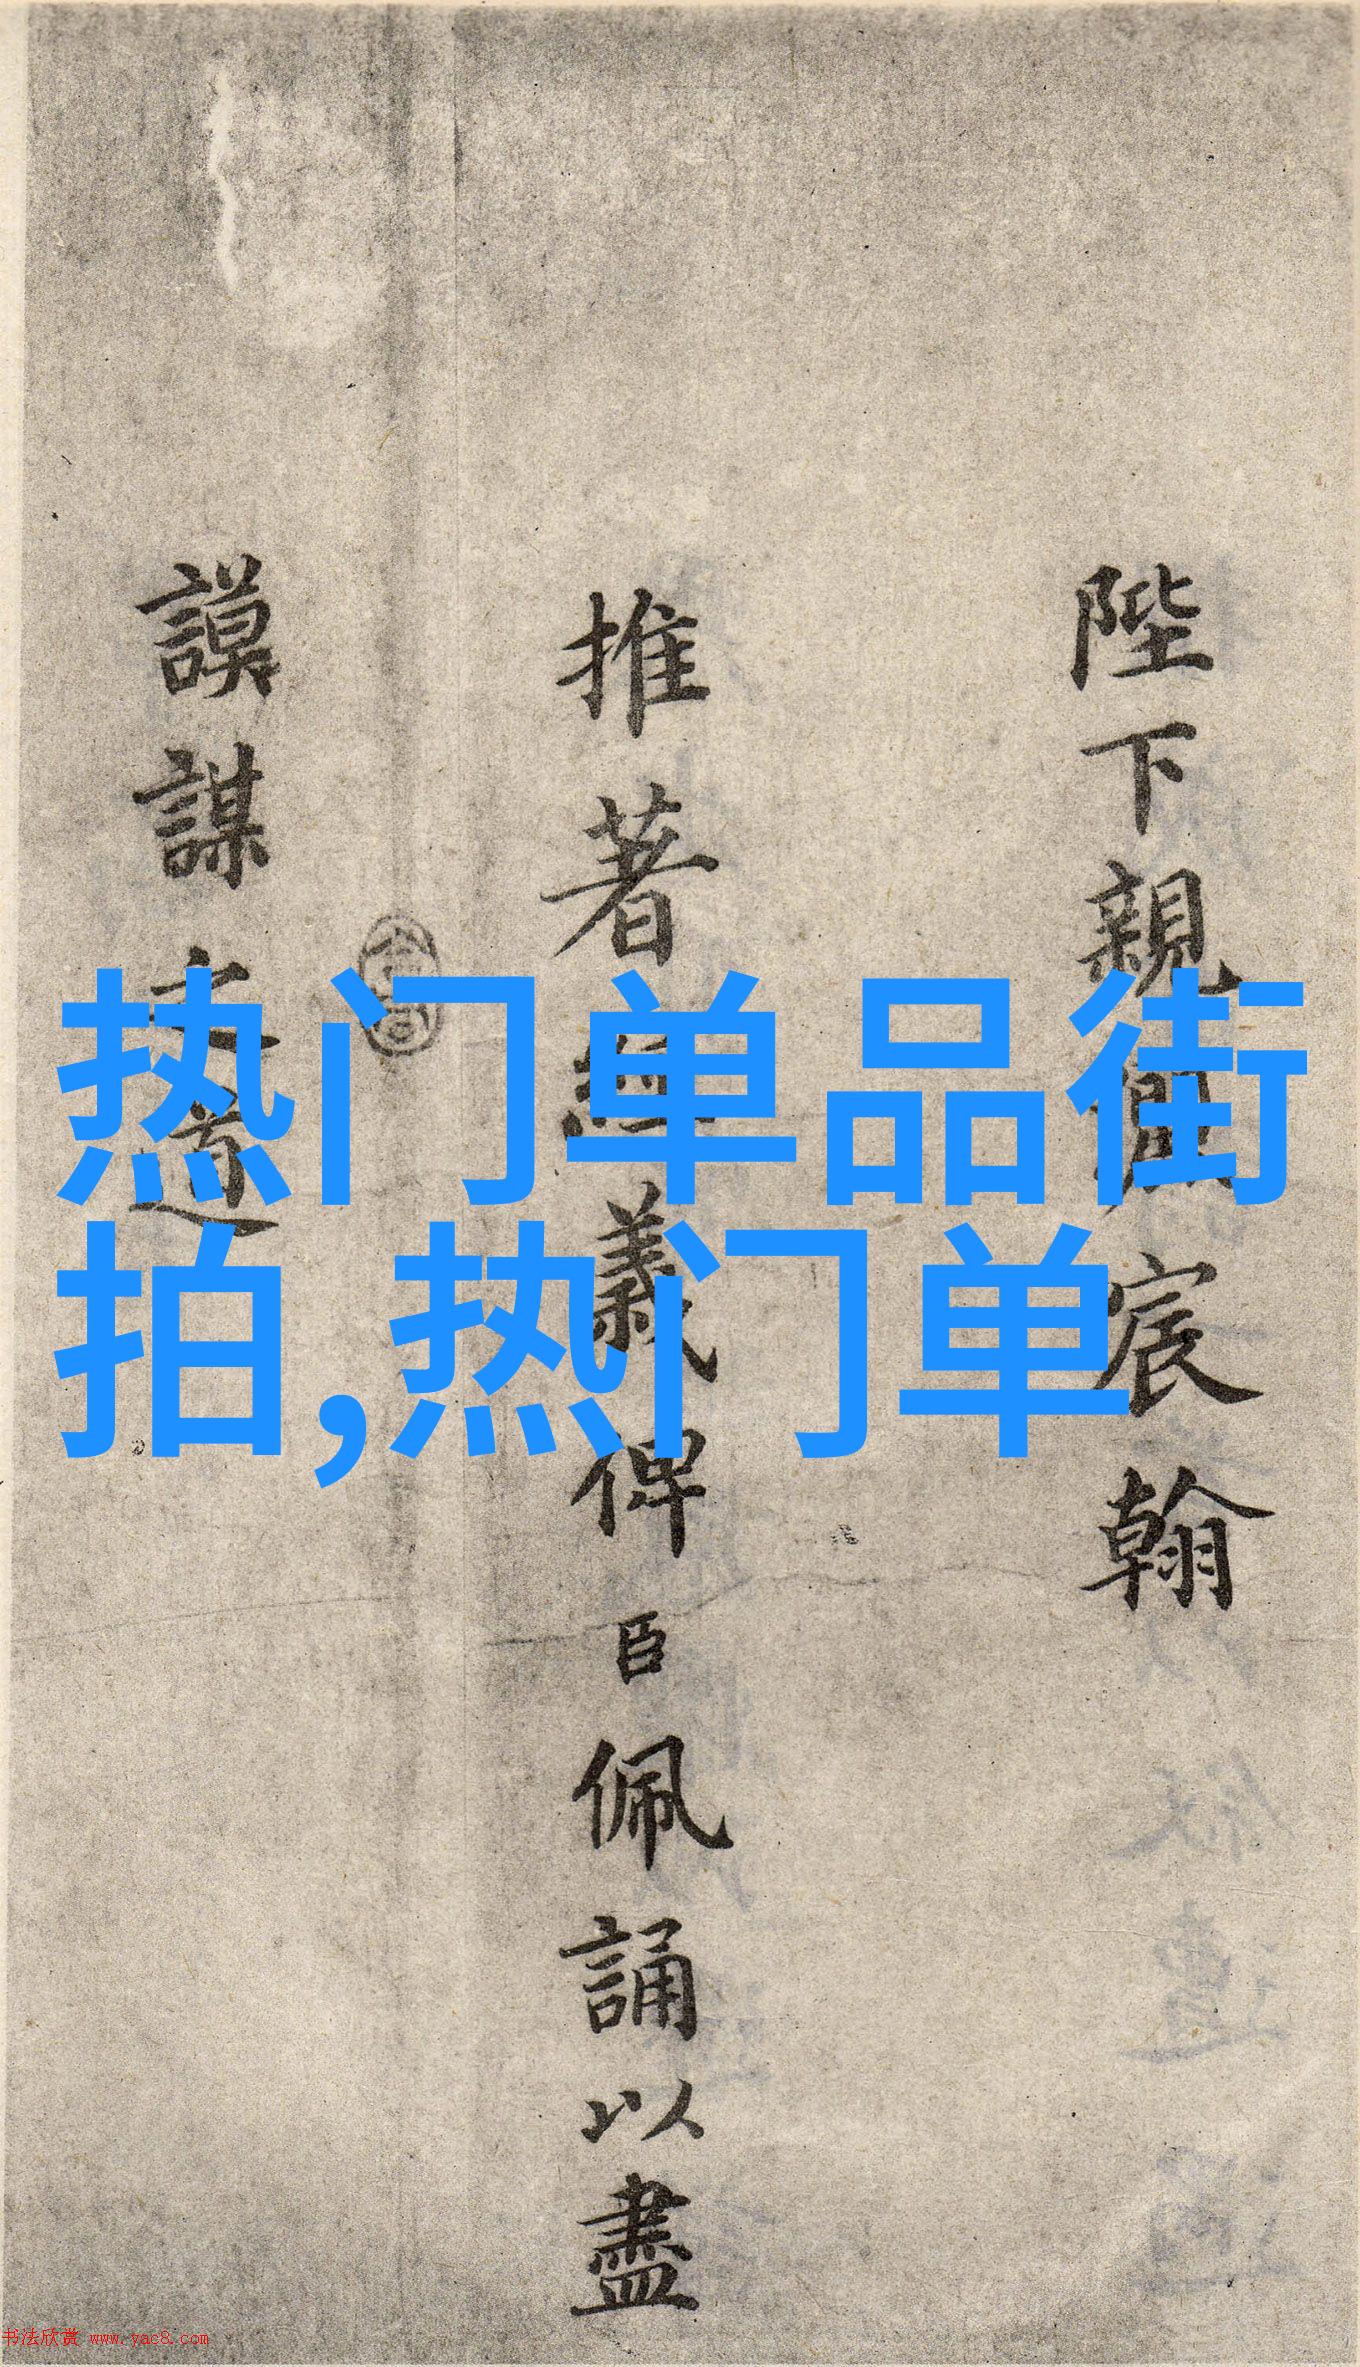 陛下親御宸翰
推著經義俾臣佩誦以盡
謨謀之道
热门单品街
拍,热门单
书法欣赏 www.yac8.com